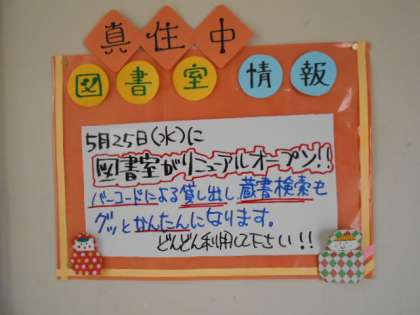 真住中
図書室情報
5月25日(水)に
図書室がリニューアルオープン!!
バーコードによる貸し出し蔵書検索も
グッとかんたんになります。
どんどん利用して下さい!!